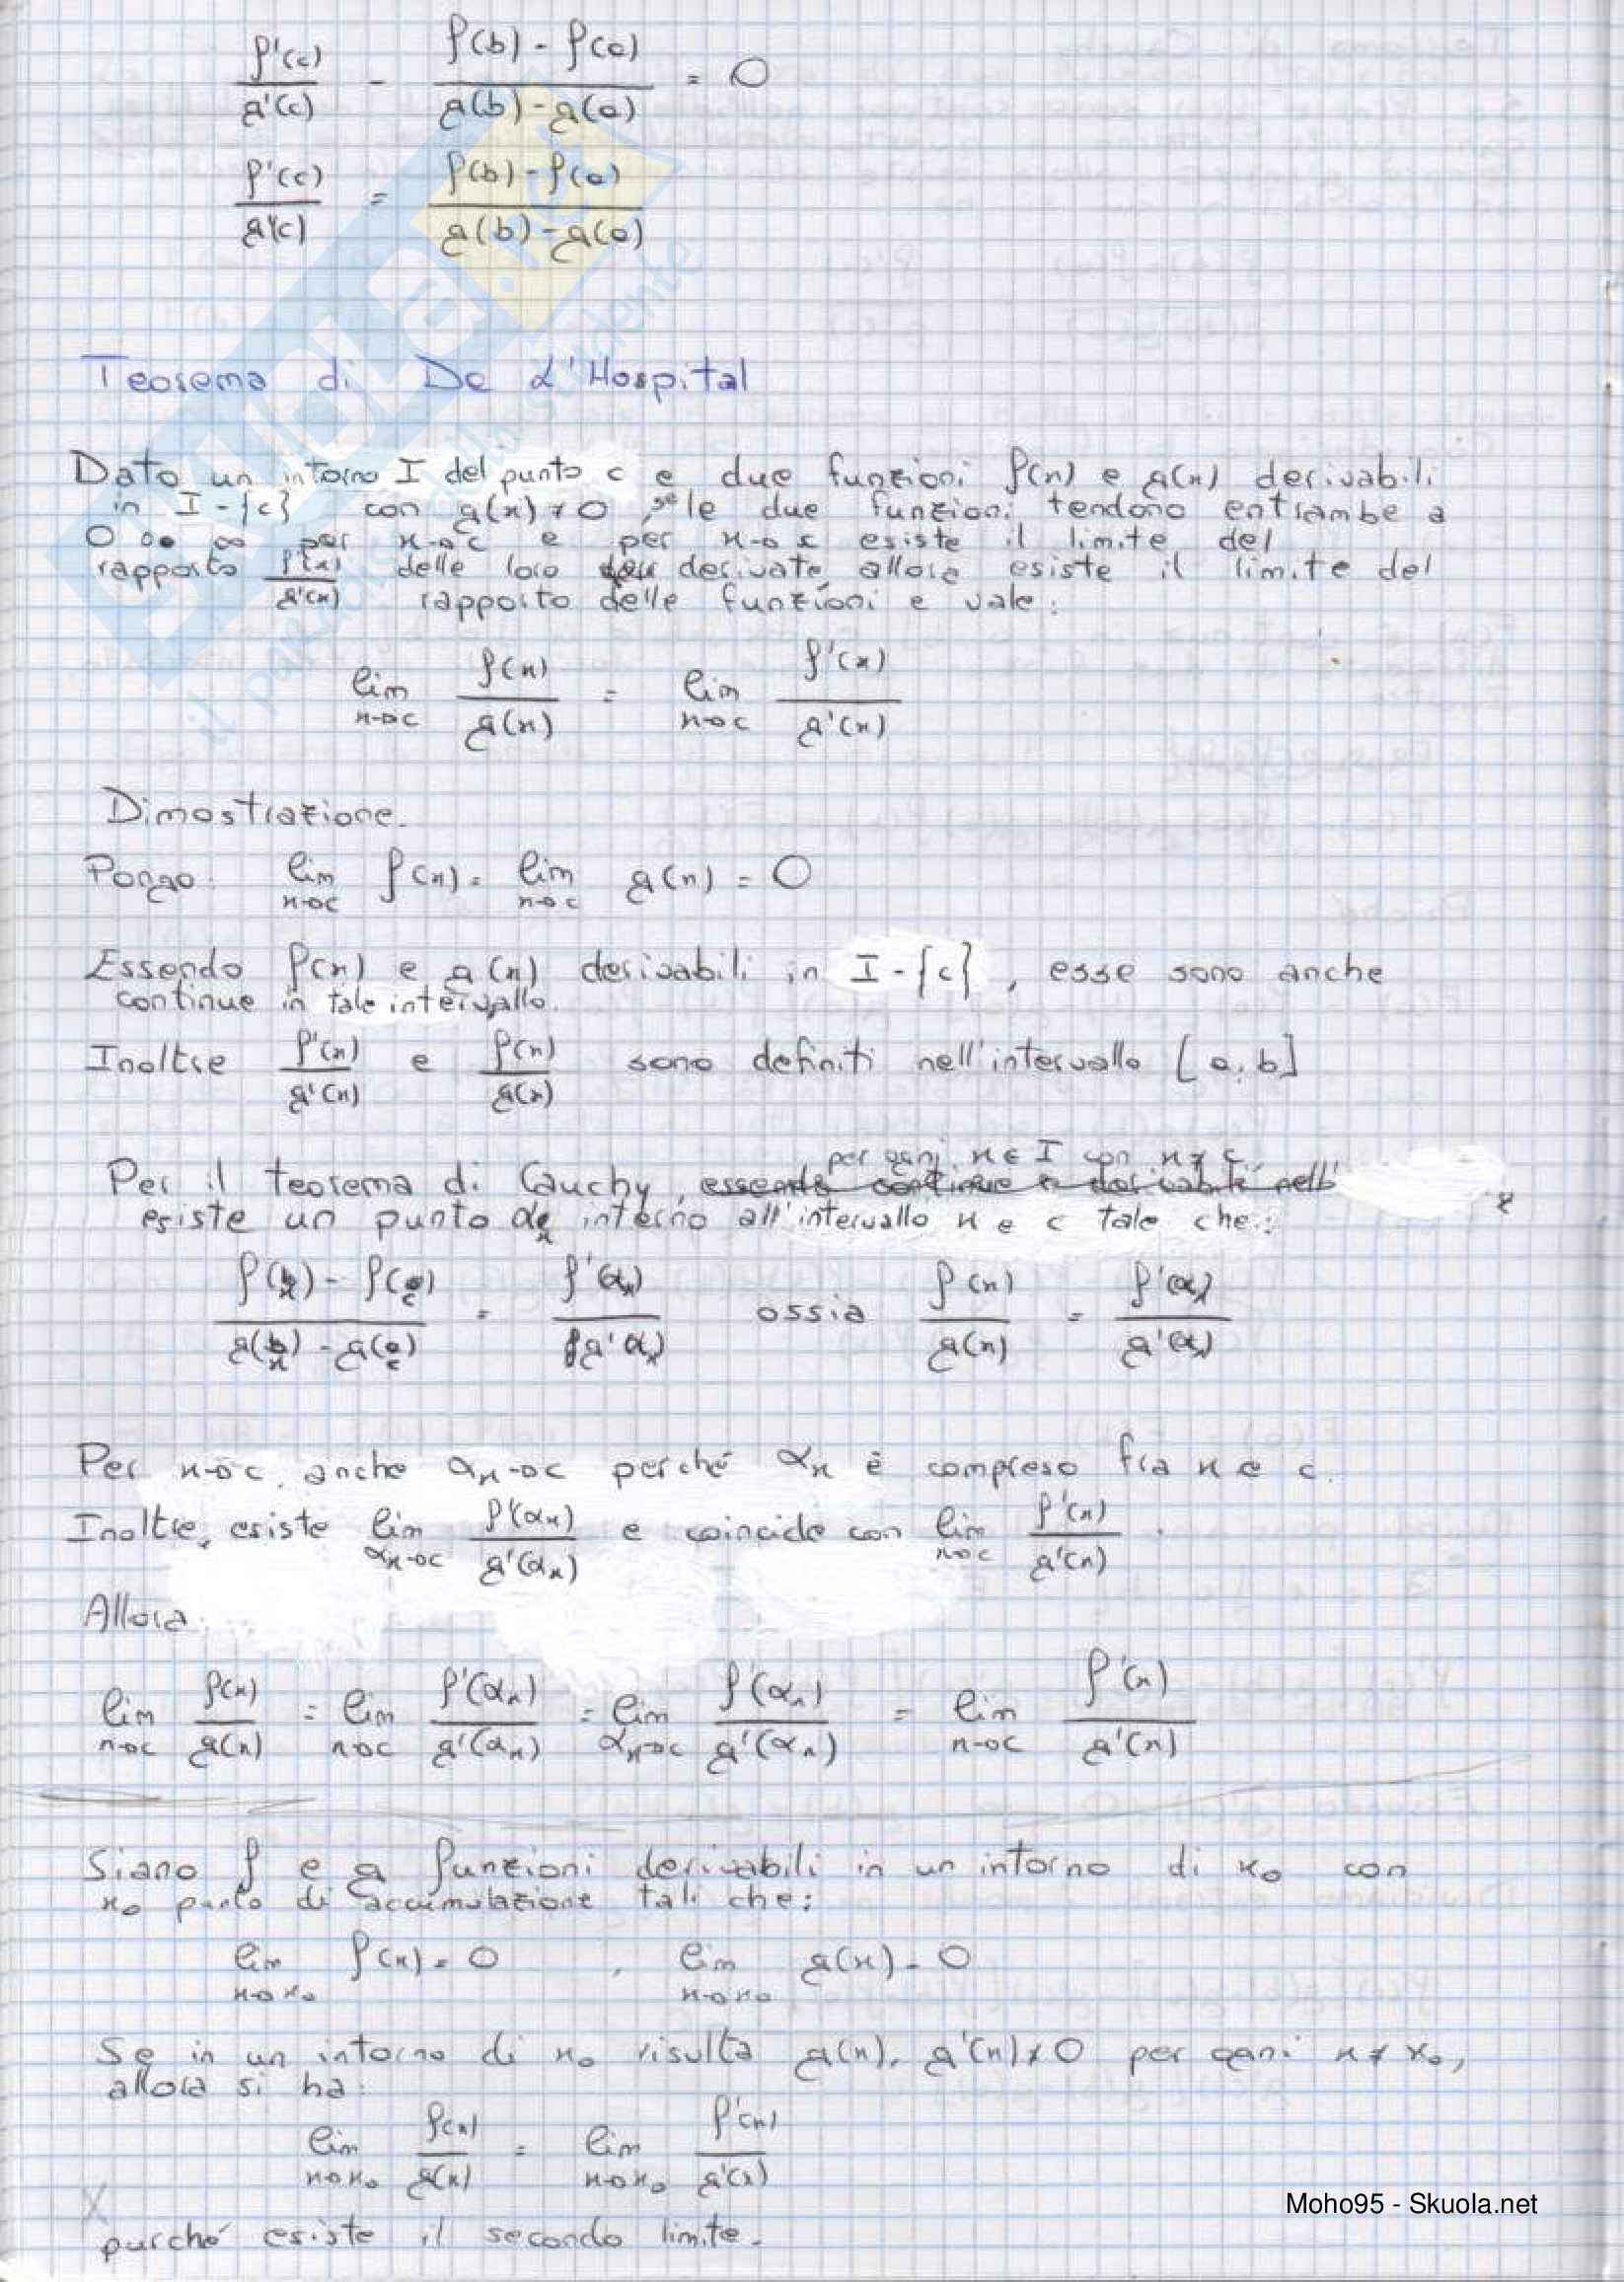 f'(c)/g'(c) - f(b) - f(a)/g(b) - g(a) = 0
f'(c)/g'(c) = f(b) - f(a)/g(b) - g(a)
Teorema di De L'Hospital
Dato un intorno I del punto c e due funzioni f(x) e g(x) derivabili
in I - {c} con g(x) ≠ 0, se le due funzioni tendono entrambe a
0 o ∞ per x→c e per x→c esiste il limite del
rapporto f'(x)/g'(x) delle loro derivate, allora esiste il limite del
rapporto delle funzioni e vale:
lim x→c f(x)/g(x) = lim x→c f'(x)/g'(x)
Dimostrazione.
Pongo: lim x→c f(x) = lim x→c g(x) = 0
Essendo f(x) e g(x) derivabili in I - {c}, esse sono anche
continue in tale intervallo.
Inoltre f'(x)/g'(x) e f(x)/g(x) sono definiti nell'intervallo [a, b]
per ogni x ∈ I con x ≠ c,
Per il teorema di Cauchy, essendo continue e derivabili nell'
esiste un punto αx interno all'intervallo x e c tale che:
f(x) - f(c)/g(x) - g(c) = f'(αx)/g'(αx) ossia f(x)/g(x) = f'(αx)/g'(αx)
Per x→c, anche αx→c perché αx è compreso fra x e c.
Inoltre, esiste lim αx→c f'(αx)/g'(αx) e coincide con lim x→c f'(x)/g'(x).
Allora:
lim x→c f(x)/g(x) = lim x→c f'(αx)/g'(αx) = lim αx→c f'(αx)/g'(αx) = lim x→c f'(x)/g'(x)
Siano f e g funzioni derivabili in un intorno di x₀ con
x₀ punto di accumulazione tali che:
lim x→x₀ f(x) = 0, lim x→x₀ g(x) = 0
Se in un intorno di x₀ risulta g(x), g'(x) ≠ 0 per ogni x ≠ x₀,
allora si ha:
lim x→x₀ f(x)/g(x) = lim x→x₀ f'(x)/g'(x)
Moho95 - Skuola.net
purché esiste il secondo limite.